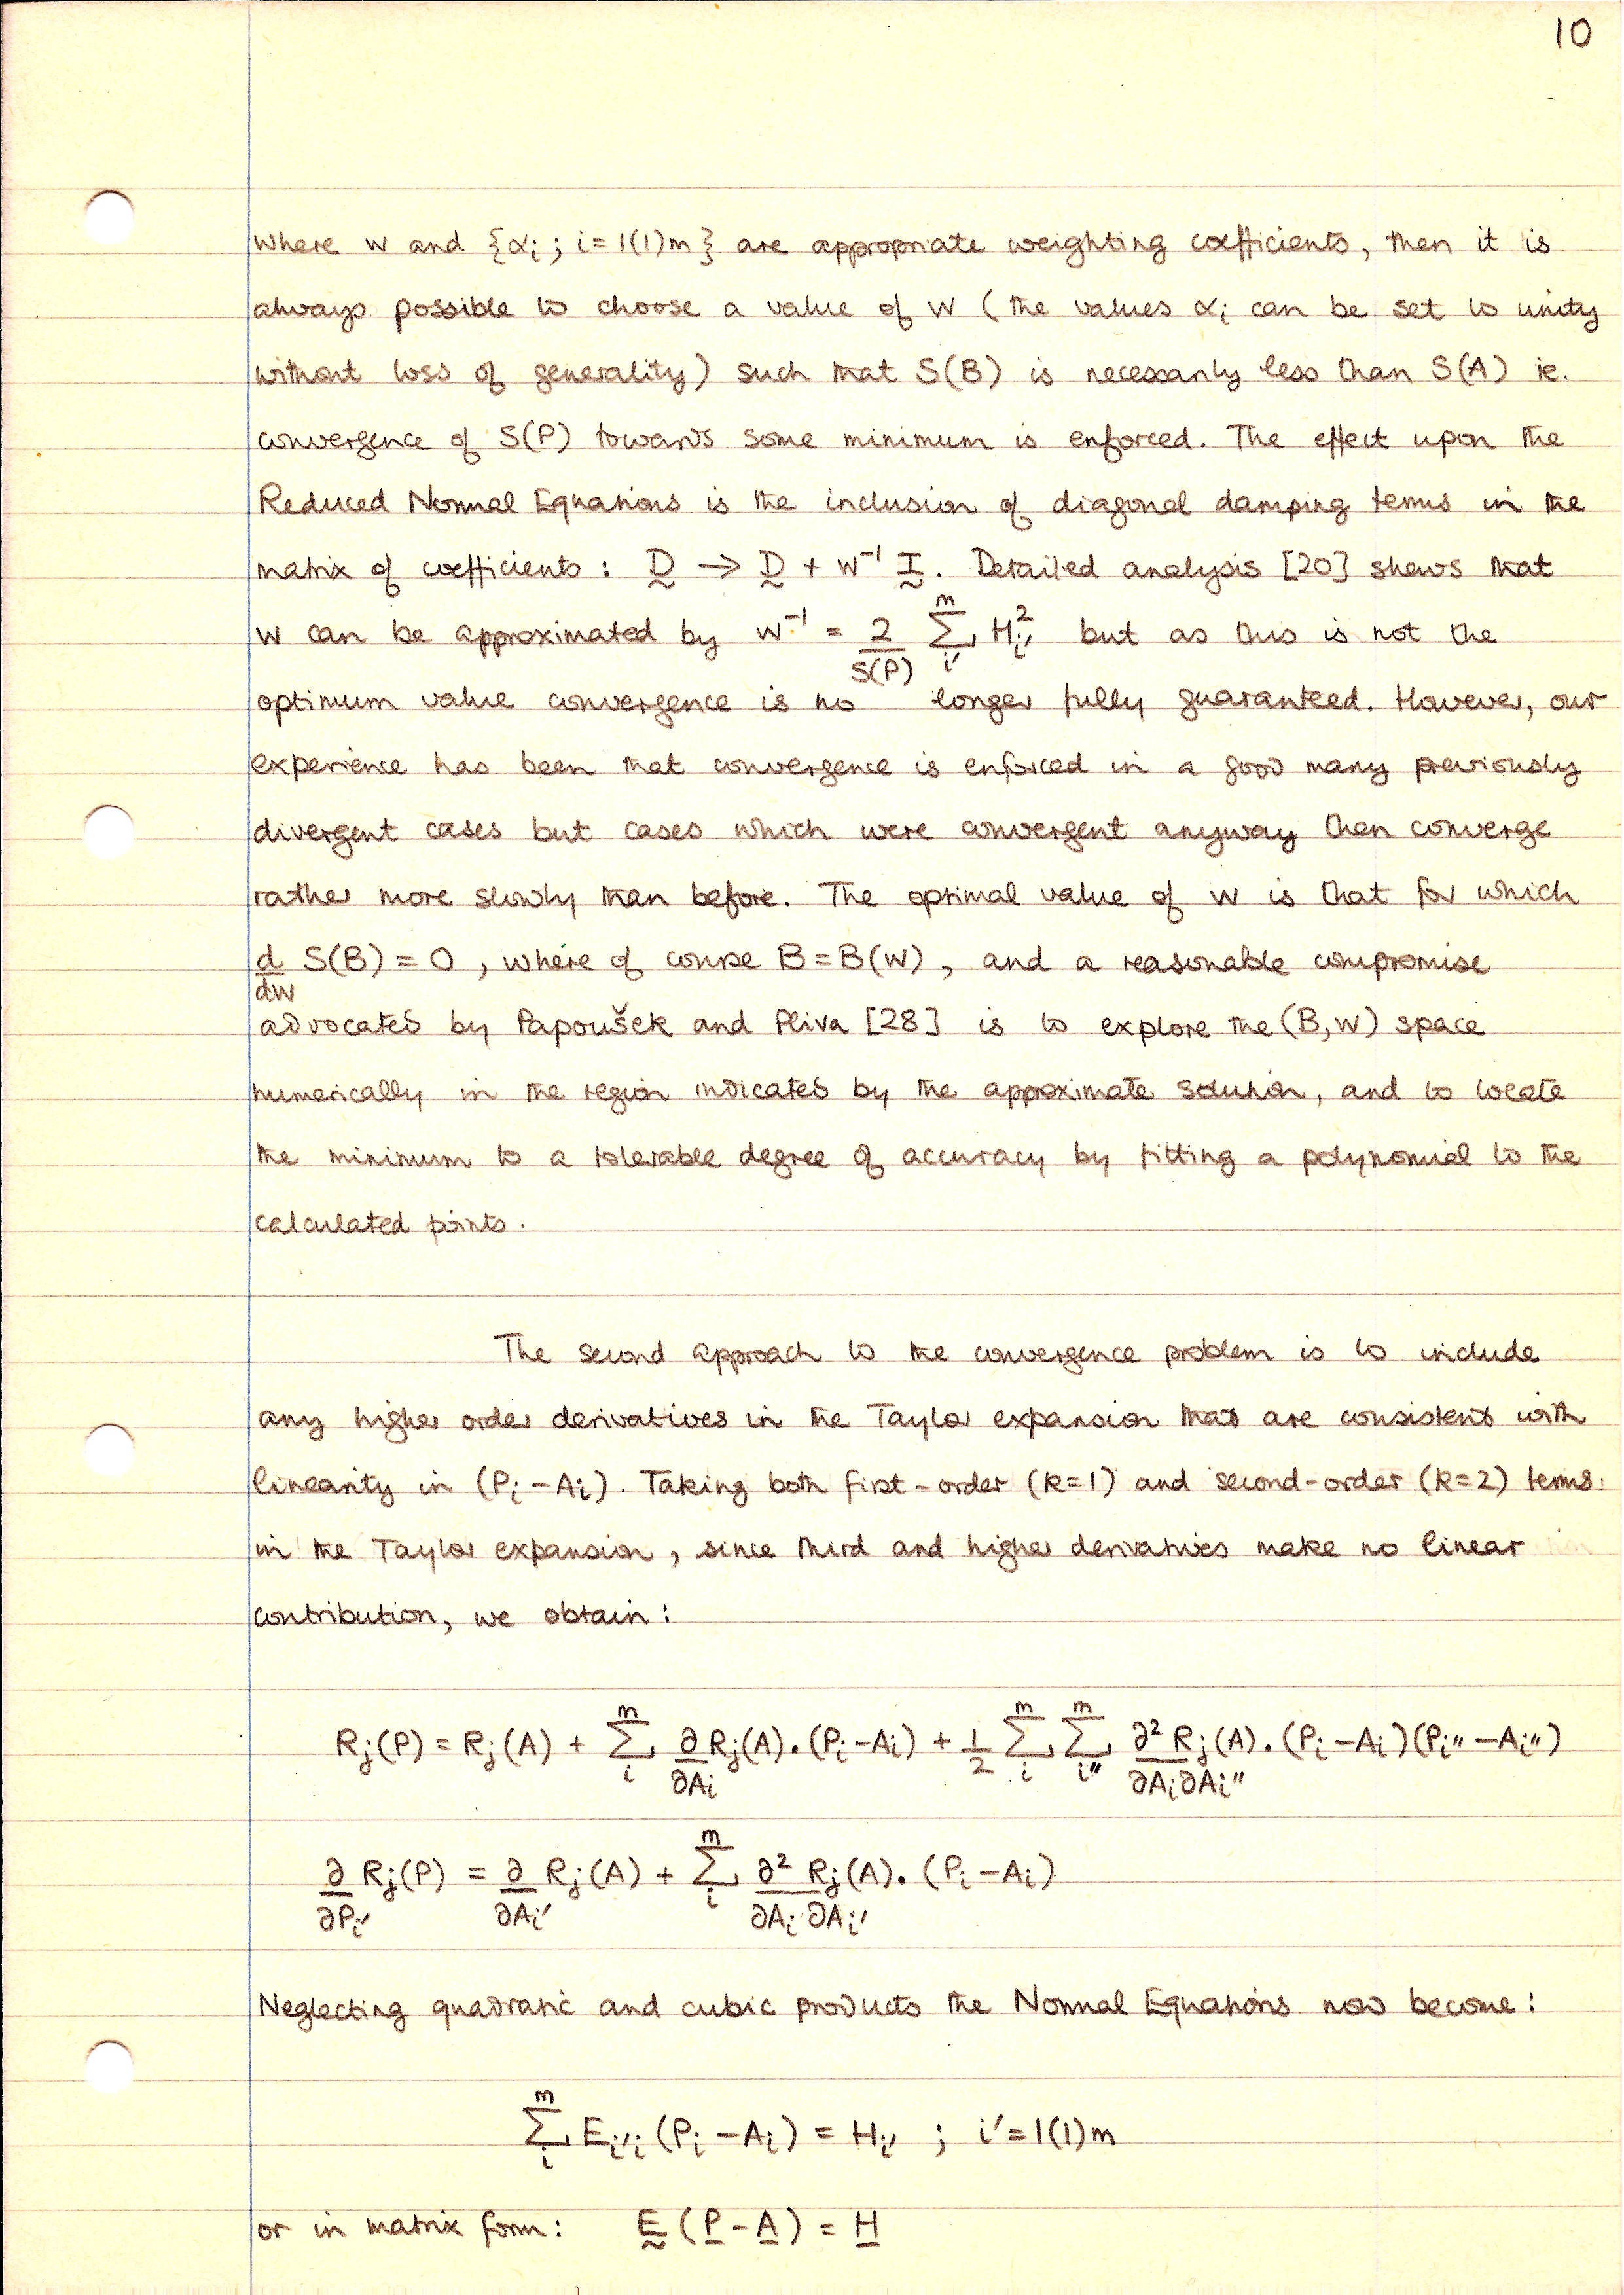 10
where w and {αᵢ ; i = 1(1)m } are appropriate weighting coefficients, then it is
always possible to choose a value of w ( the values αᵢ can be set to unity
without loss of generality) such that S(B) is necessarily less than S(A) ie.
convergence of S(P) towards some minimum is enforced. The effect upon the
Reduced Normal Equations is the inclusion of diagonal damping terms in the
matrix of coefficients : D̰ → D̰ + w⁻¹ Ḭ. Detailed analysis [20] shows that
w can be approximated by w⁻¹ = 2/S(P) Σᵢ′ᵐ Hᵢ′² but as this is not the
optimum value convergence is no longer fully guaranteed. However, our
experience has been that convergence is enforced in a good many previously
divergent cases but cases which were convergent anyway then converge
rather more slowly than before. The optimal value of w is that for which
d/dw S(B) = 0 , where of course B = B(w) , and a reasonable compromise
advocated by Papoušek and Pliva [28] is to explore the (B,w) space
numerically in the region indicated by the approximate solution, and to locate
the minimum to a tolerable degree of accuracy by fitting a polynomial to the
calculated points.
The second approach to the convergence problem is to include
any higher order derivatives in the Taylor expansion that are consistent with
linearity in (Pᵢ - Aᵢ). Taking both first-order (k=1) and second-order (k=2) terms
in the Taylor expansion , since third and higher derivatives make no linear
contribution, we obtain :
Rⱼ(P) = Rⱼ(A) + Σᵢᵐ ∂/∂Aᵢ Rⱼ(A).(Pᵢ-Aᵢ) + 1/2 Σᵢᵐ Σᵢ″ᵐ ∂²/∂Aᵢ∂Aᵢ″ Rⱼ(A).(Pᵢ-Aᵢ)(Pᵢ″-Aᵢ″)
∂/∂Pᵢ′ Rⱼ(P) = ∂/∂Aᵢ′ Rⱼ(A) + Σᵢᵐ ∂²/∂Aᵢ∂Aᵢ′ Rⱼ(A).(Pᵢ-Aᵢ)
Neglecting quadratic and cubic products the Normal Equations now become :
Σᵢᵐ Eᵢ′ᵢ (Pᵢ - Aᵢ) = Hᵢ′ ; i′ = 1(1)m
or in matrix form : Ḛ (P̲ - A̲) = H̲